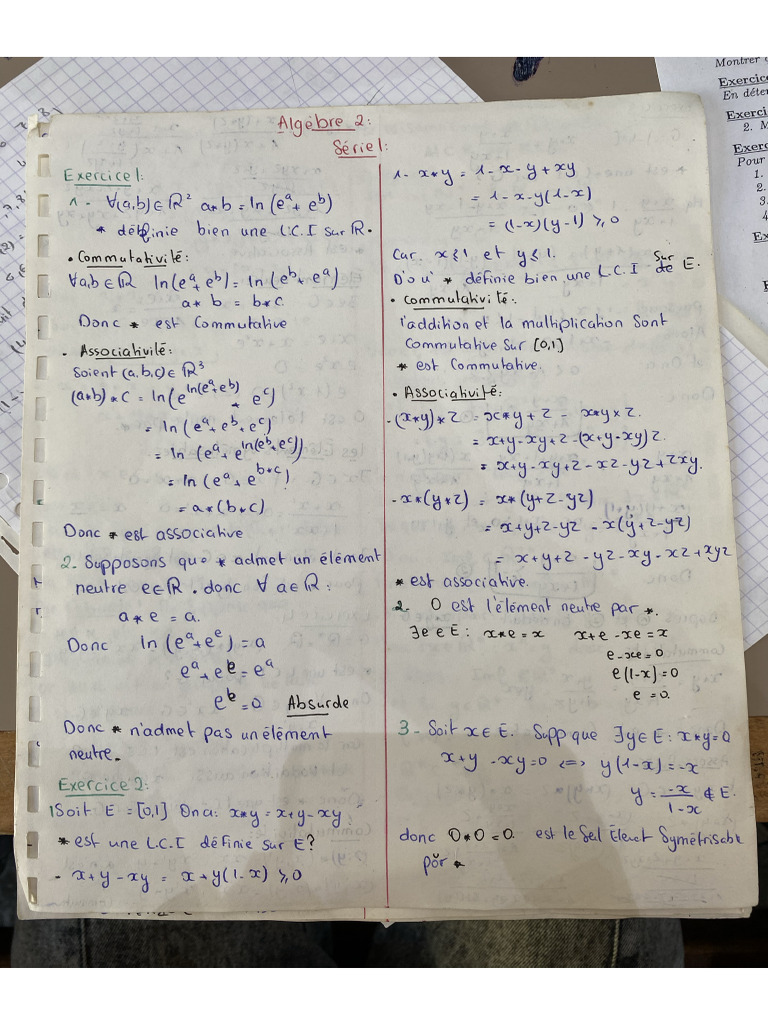 Algébre 2:
Série 1:
Exercice 1:
1- ∀(a,b) ∈ ℝ² a*b = ln(e^a + e^b)
* définie bien une L.C.I sur ℝ.
• Commutativité:
∀a,b ∈ ℝ ln(e^a + e^b) = ln(e^b + e^a)
a * b = b * c.
Donc * est Commutative
- Associativité:
Soient (a,b,c) ∈ ℝ³
(a*b) * c = ln(e^ln(e^a+e^b) + e^c)
= ln(e^a + e^b + e^c)
= ln(e^a + e^ln(e^b+e^c))
= ln(e^a + e^b*c)
= a * (b * c)
Donc * est associative.
2- Supposons que * admet un élément
neutre e∈ℝ. donc ∀ a∈ℝ:
a * e = a.
Donc ln(e^a + e^e) = a
e^a + e^e = e^a
e^e = 0 Absurde
Donc * n'admet pas un élément
neutre.
Exercice 2:
1 Soit E = [0,1] On a: x*y = x+y-xy
* est une L.C.I définie sur E?
- x+y-xy = x+y(1-x) ≥ 0
1- x*y = 1-x-y+xy
= 1-x-y(1-x)
= (1-x)(y-1) ≥ 0
Car x ≤ 1 et y ≤ 1.
D'où * définie bien une L.C.I sur de E.
• Commutativité:
l'addition et la multiplication sont
Commutative sur [0,1]
* est Commutative.
• Associativité:
-(x*y)*z = x*y+z - x*y×z.
= x+y-xy+z-(x+y-xy)z.
= x+y-xy+z-xz-yz+zxy.
-x*(y*z) = x*(y+z-yz)
= x+y+z-yz - x(y+z-yz)
= x+y+z-yz-xy-xz+xyz
* est associative.
2- 0 est l'élément neutre par *.
∃e∈E: x*e=x x+e-xe=x
e-xe=0
e(1-x)=0
e=0.
3- Soit x∈E. Supp que ∃y∈E: x*y=0
x+y-xy=0 ⟺ y(1-x)=-x
y = -x/1-x ∉ E.
donc 0*0=0. est le Sel Élemet Symétrisable
por *